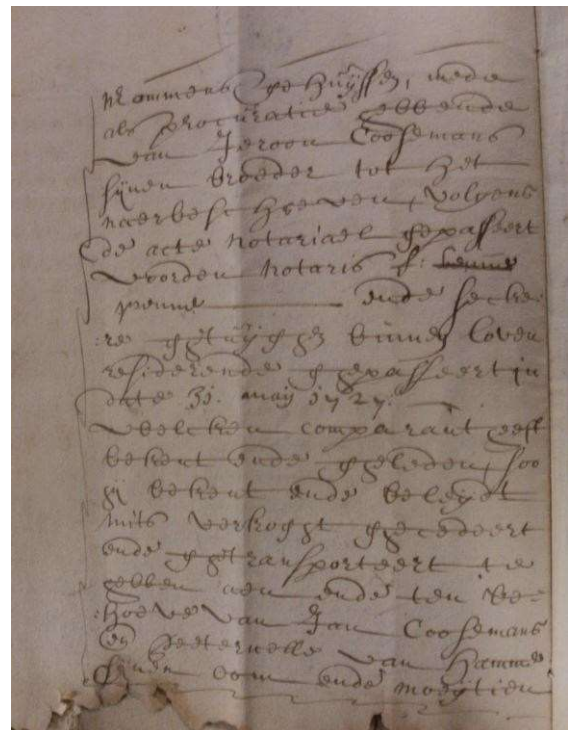 Mommens gehuijssen, mede
als procuratie hebbende
van Jeroon Coosemans
sijnen broeder tot het
naerbeschreven, volgens
de acte notariael gepasseert
voorden notaris f:
penne ende seeke-
-re getuijgen binnen loven
residerende gepasseert in
date 31. maij 1727.
welcken comparant heeft
bekent ende geleden, soo
hij bekent ende belijdt
mits verkoght gecedeert
ende getransporteert te
hebben aen ende ten be-
-hoeve van Jan Coosemans
en peeternelle van Hamme
sijnen oom ende moeijtien